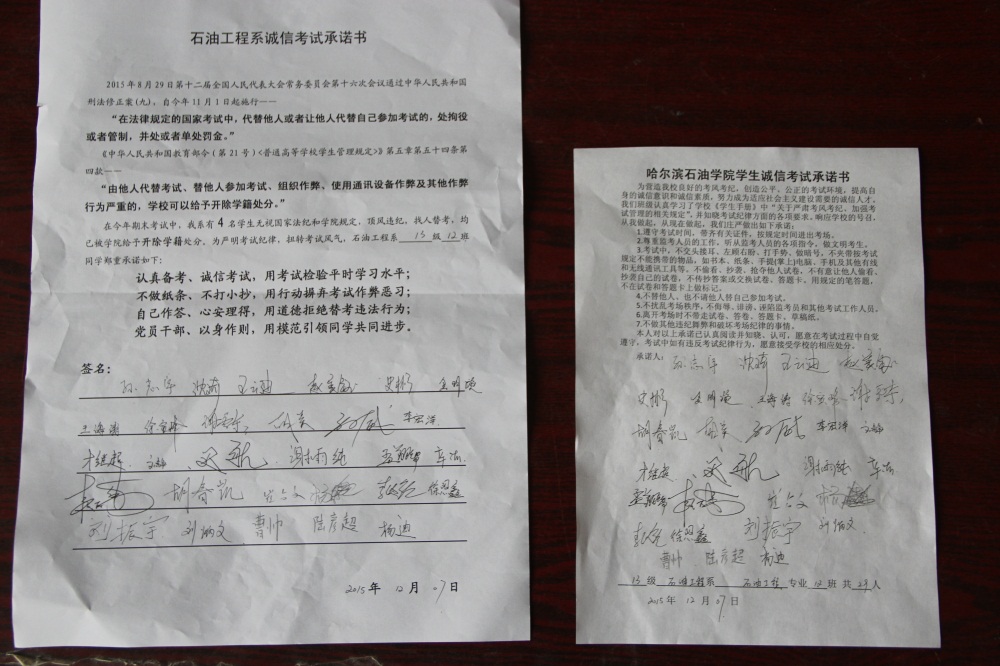 石油工程系诚信考试承诺书
2015年8月29日第十二届全国人民代表大会常务委员会第十六次会议通过中华人民共和国
刑法修正案(九)，自今年11月1日起施行——
“在法律规定的国家考试中，代替他人或者让他人代替自己参加考试的，处拘役
或者管制，并处或者单处罚金。”
《中华人民共和国教育部令（第21号）<普通高等学校学生管理规定>》第五章第五十四条第
四款——
“由他人代替考试、替他人参加考试、组织作弊、使用通讯设备作弊及其他作弊
行为严重的，学校可以给予开除学籍处分。”
在今年期末考试中，我系有4名学生无视国家法纪和学院规定，顶风违纪，找人替考，均
已被学院给予开除学籍处分。为严明考试纪律，扭转考试风气，石油工程系 13 级 12 班
同学郑重承诺如下：
认真备考、诚信考试，用考试检验平时学习水平；
不做纸条、不打小抄，用行动摒弃考试作弊恶习；
自己作答、心安理得，用道德拒绝替考违法行为；
党员干部、以身作则，用模范引领同学共同进步。
签名：
孙志华 沈琦 王云迪
王海涛 胡英 孙威 车宏洋
文静 谢雨纯 车冻
胡春凯 崔文 徐恩鑫
刘振宇 刘炳文 曹帅 陆彦超 杨迪
2015年 12月 27日
哈尔滨石油学院学生诚信考试承诺书
为营造我校良好的考风考纪，创造公平、公正的考试环境，提高自
身的诚信意识和诚信素质，努力成为适应社会主义建设需要的诚信人才，
我们班级认真学习了学校《学生手册》中“关于严肃考风考纪，加强考
试管理的相关规定”，并知晓考试纪律方面的各项要求。响应学校的号召，
从我做起，从现在做起，我们庄严做出如下承诺：
1.遵守考试时间，带齐有关证件，按规定时间进出考场。
2.尊重监考人员的工作，听从监考人员的各项指令，做文明考生。
3.考试中，不交头接耳、左顾右盼、打手势、做暗号，不夹带按考试
规定不能携带的物品，如书本、纸条、手提(掌上)电脑、手机及其他有线
和无线通讯工具等，不偷看、抄袭、抢夺他人试卷，不有意让他人偷看、
抄袭自己的试卷，不传抄答案或交换试卷、答题卡，用规定的笔答题，
不在试卷和答题卡上做标记。
4.不替他人、也不请他人替自己参加考试。
5.不扰乱考场秩序，不侮辱、诽谤、诬陷监考员和其他考试工作人员。
6.离开考场时不带走试卷、答卷、答题卡、草稿纸。
7.不做其他违纪舞弊和破坏考场纪律的事情。
本人对以上承诺已认真阅读并知晓、认可，愿意在考试过程中自觉
遵守，考试中如有违反考试纪律行为，愿意接受学校的相应处分。
承诺人： 孙志华 沈琦 王云迪
王海涛
胡春凯 胡英 孙威 车宏洋 文静
谢雨纯 车冻
崔文
徐恩鑫 刘振宇 刘炳文
曹帅 陆彦超 杨迪
13 级 石油工程系 石油工程 专业 12 班 共 29 人
2015年 12月 27日